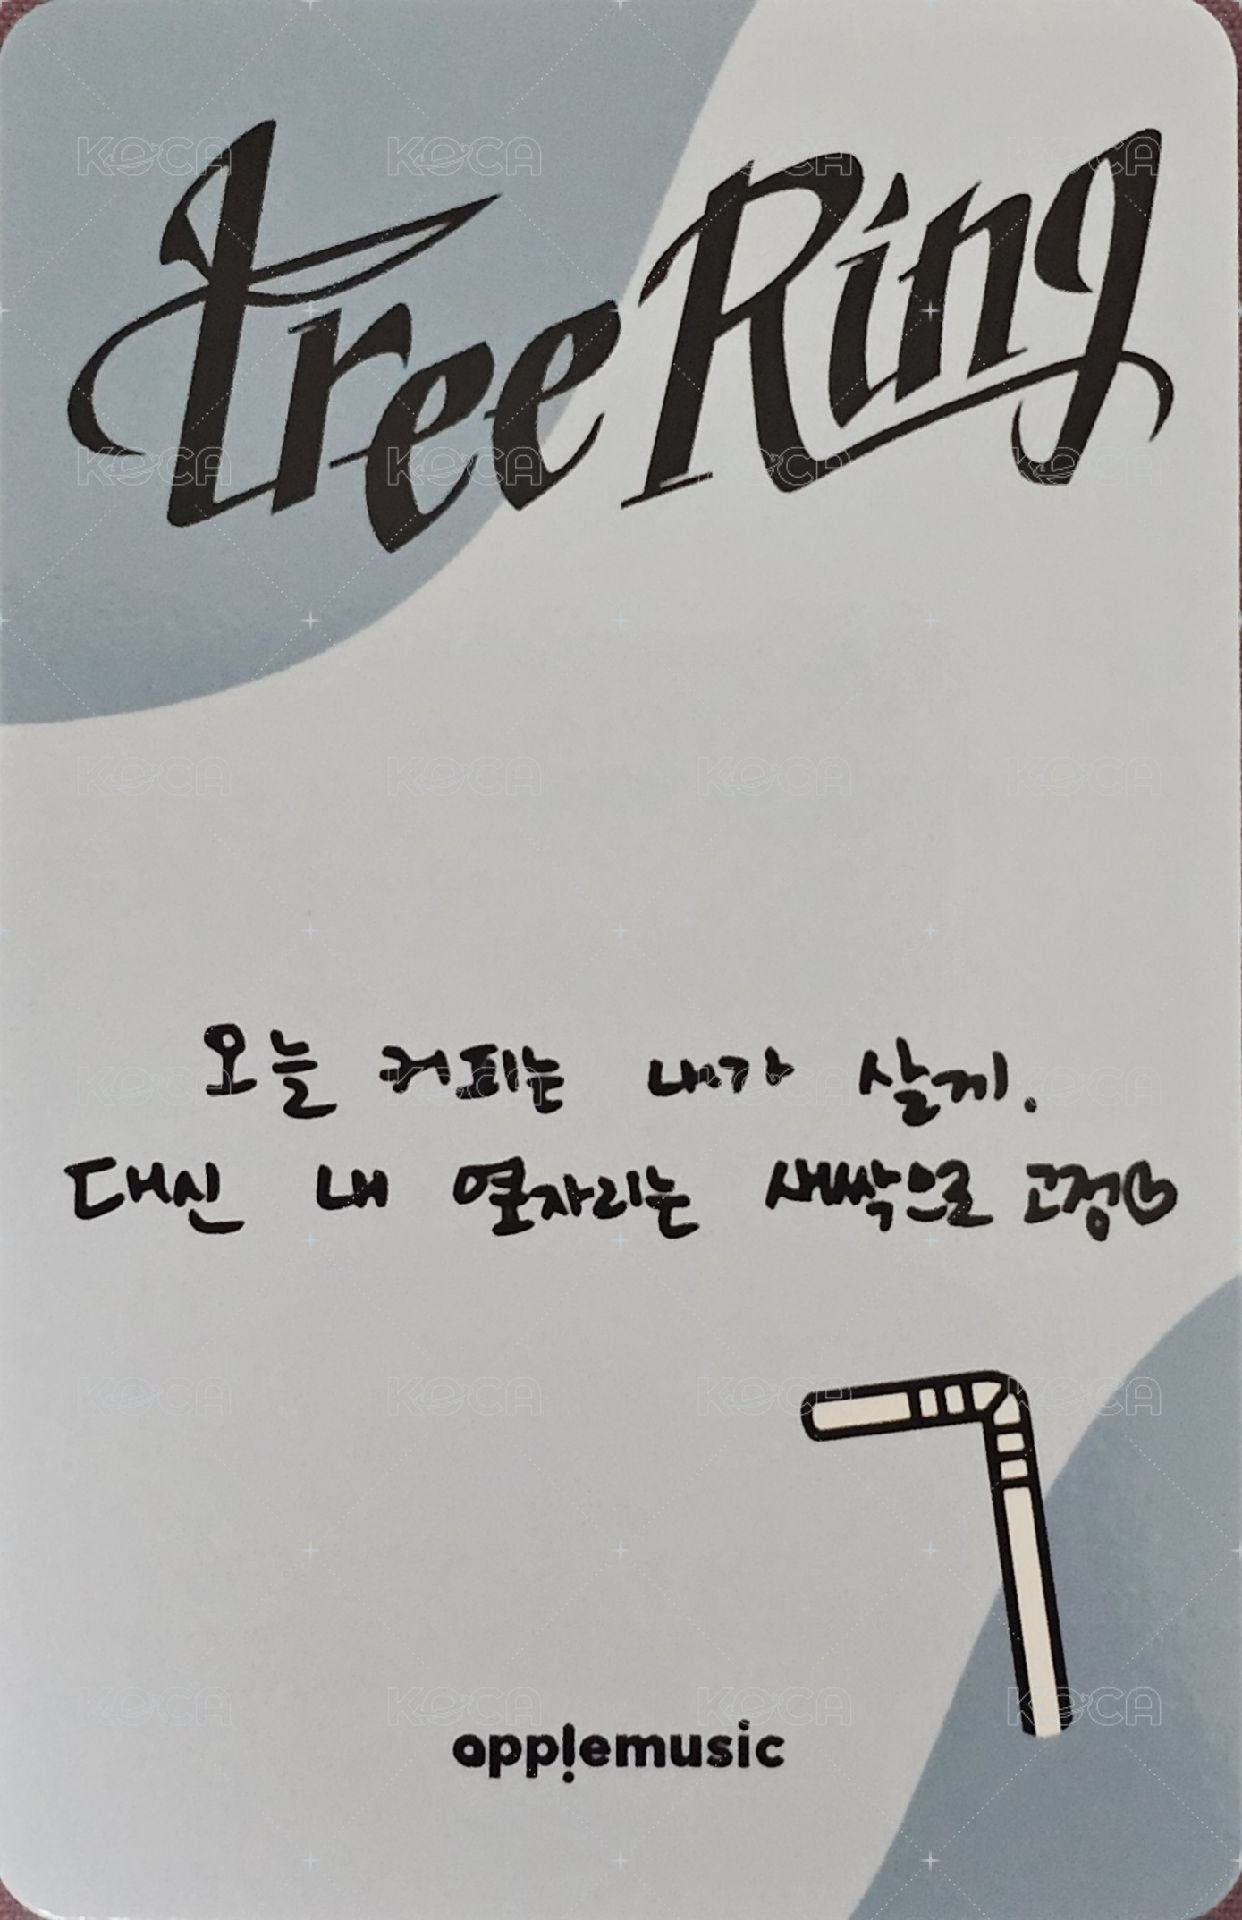 tree Ring
오늘 커피는 내가 살게.
대신 내 옆자리는 새싹으로 고정
applemusic
KOCA